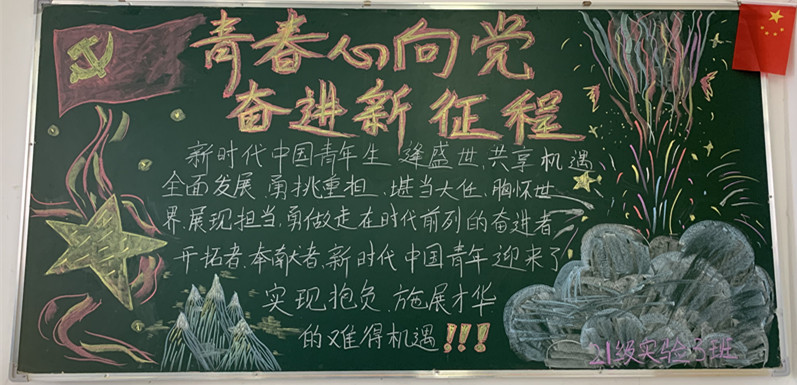 青春心向党
奋进新征程
新时代中国青年生逢盛世,共享机遇
全面发展、勇挑重担、堪当大任、胸怀世
界、展现担当、勇做走在时代前列的奋进者
开拓者、奉献者、新时代中国青年迎来了
实现抱负、施展才华
的难得机遇!!!
21级实验3班